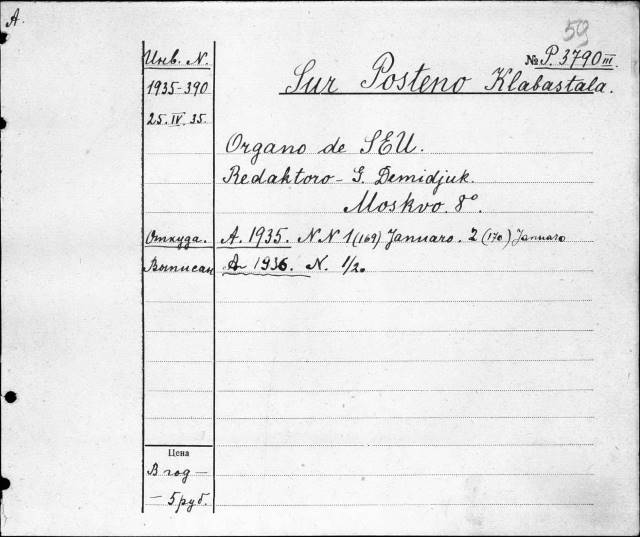 A.
59
Инв. N.
№ P. 3790 III
Sur Posteno Klabastala.
1935-390
25.IV.35.
Organo de SEU.
Redaktoro - G. Demidjuk.
Moskvo. 8°.
Откуда. A. 1935. NN 1 (169) Januaro. 2 (170) Januaro
Выписан A 1936. N. 1/2.
Цена
В год —
— 5 руб.